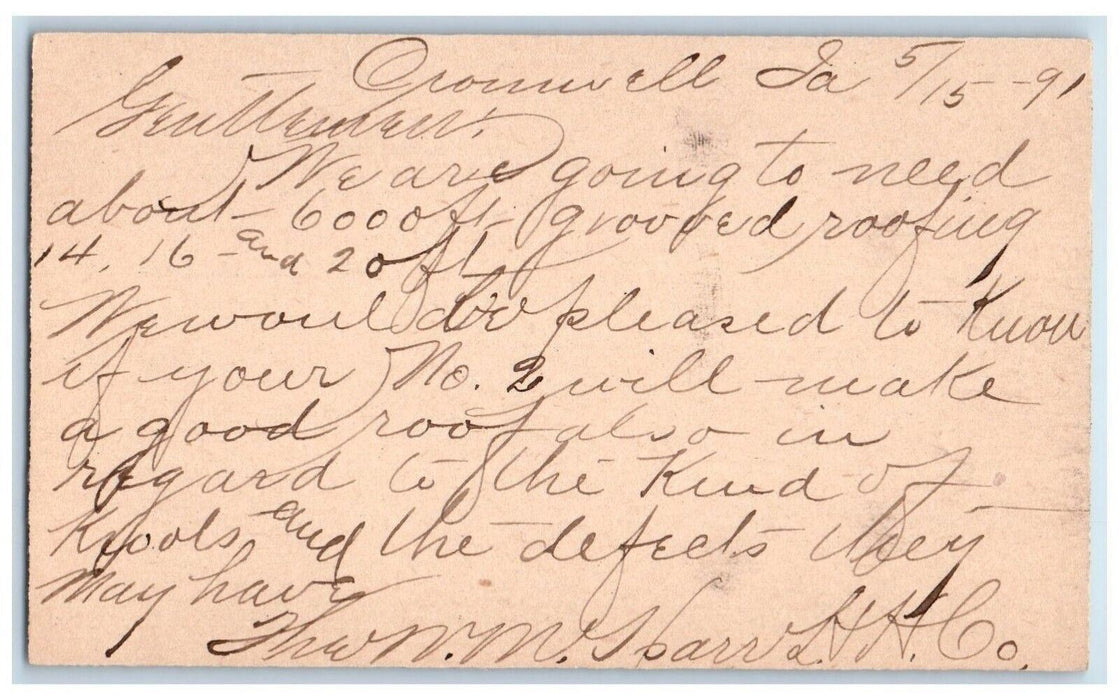 Cromwell Ia 5/15-91
Gentlemen:
We are going to need
about 6000 ft grooved roofing
14, 16 and 20 ft
We would be pleased to know
if your No. 2 will make
a good roof also in
regard to the kind of
knots and the defects they
may have
The W. M. L. & H. Co.